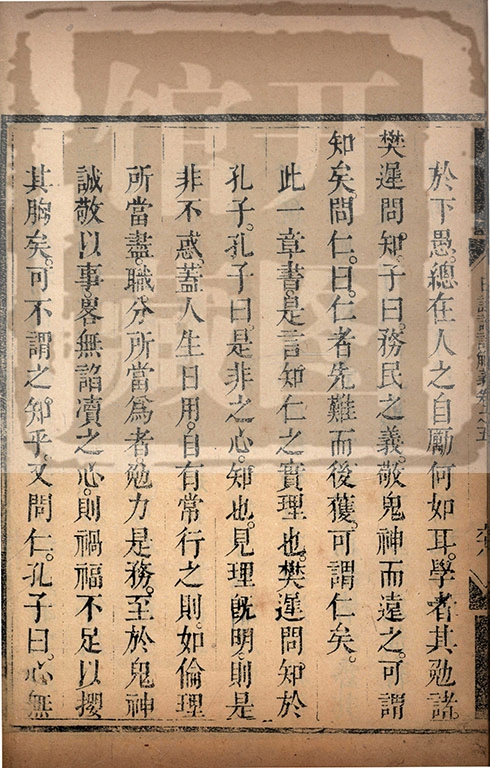 於下愚。總在人之自勵何如耳。學者其勉諸。
樊遲問知。子曰。務民之義。敬鬼神而遠之。可謂
知矣。問仁。曰。仁者先難而後獲。可謂仁矣。
此一章書。是言知仁之實理也。樊遲問知於
孔子。孔子曰。是非之心。知也。見理旣明。則是
非不惑。蓋人生日用。自有常行之則。如倫理
所當盡。職分所當爲者。勉力是務。至於鬼神
誠敬以事。畧無諂凟之心。則禍福不足以攖
其胸矣。可不謂之知乎。又問仁。孔子曰。心無